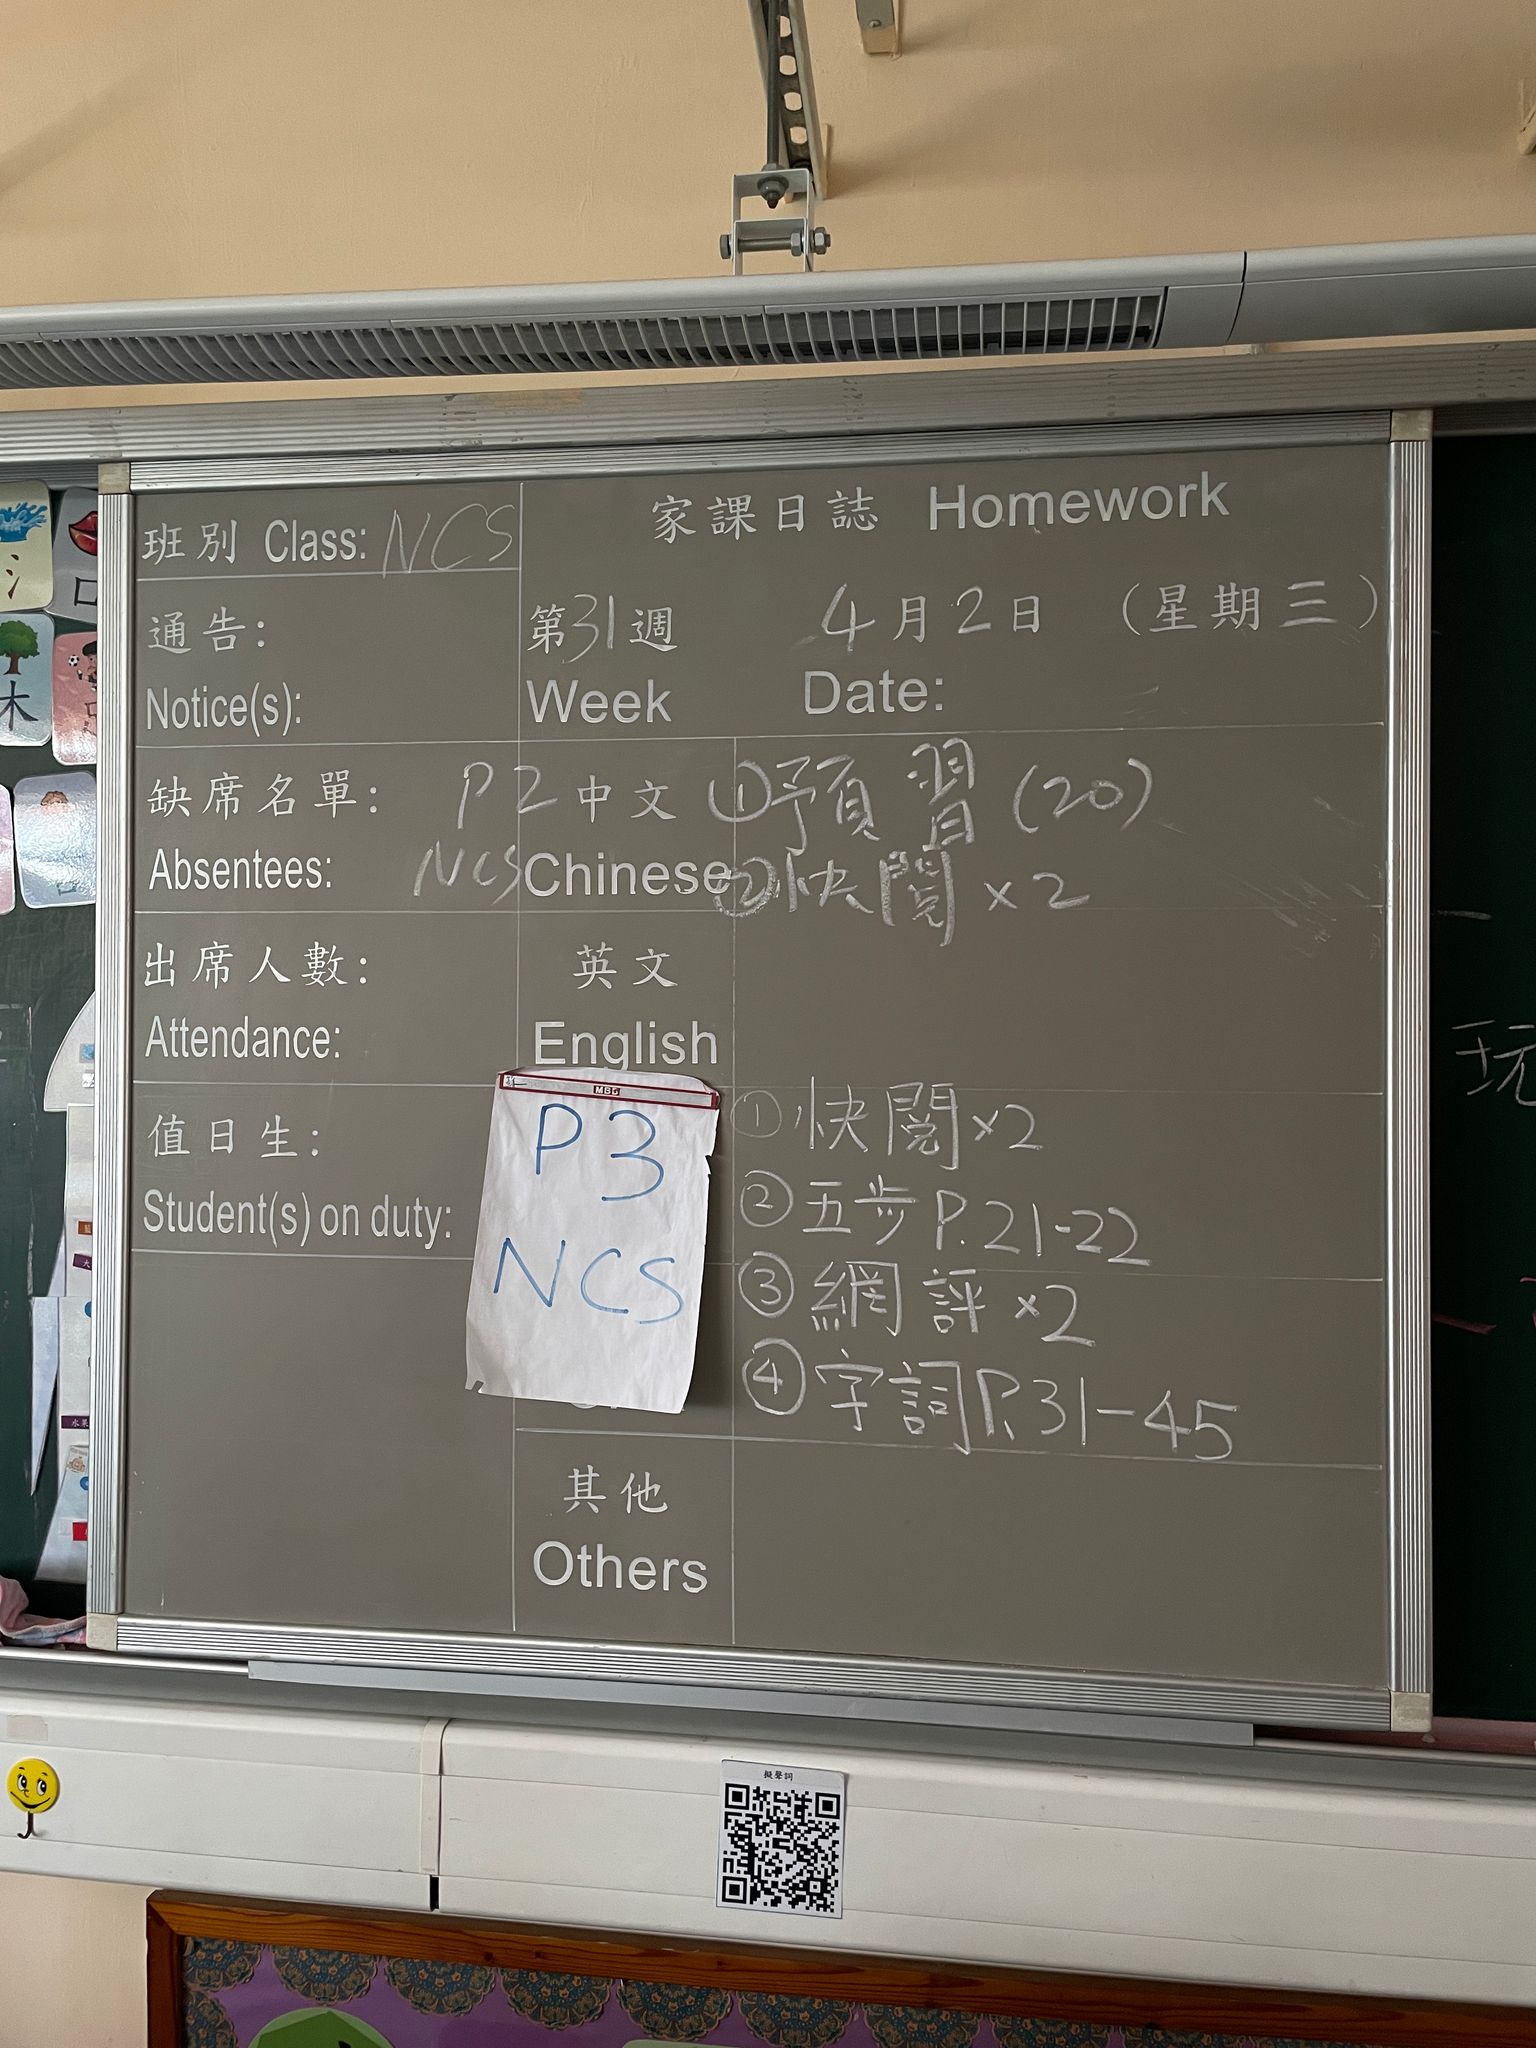 班別 Class: NCS
家課日誌 Homework
通告:
Notice(s):
第31週 4月2日 (星期三)
Week Date:
缺席名單:
Absentees:
P2
NCS
中文
Chinese
①預習(20)
②快閱×2
出席人數:
Attendance:
英文
English
值日生:
Student(s) on duty:
MBG
P3
NCS
①快閱×2
②五步P.21-22
③網評×2
④字詞P.31-45
其他
Others
擬聲詞
木
口
氵
玩
水果